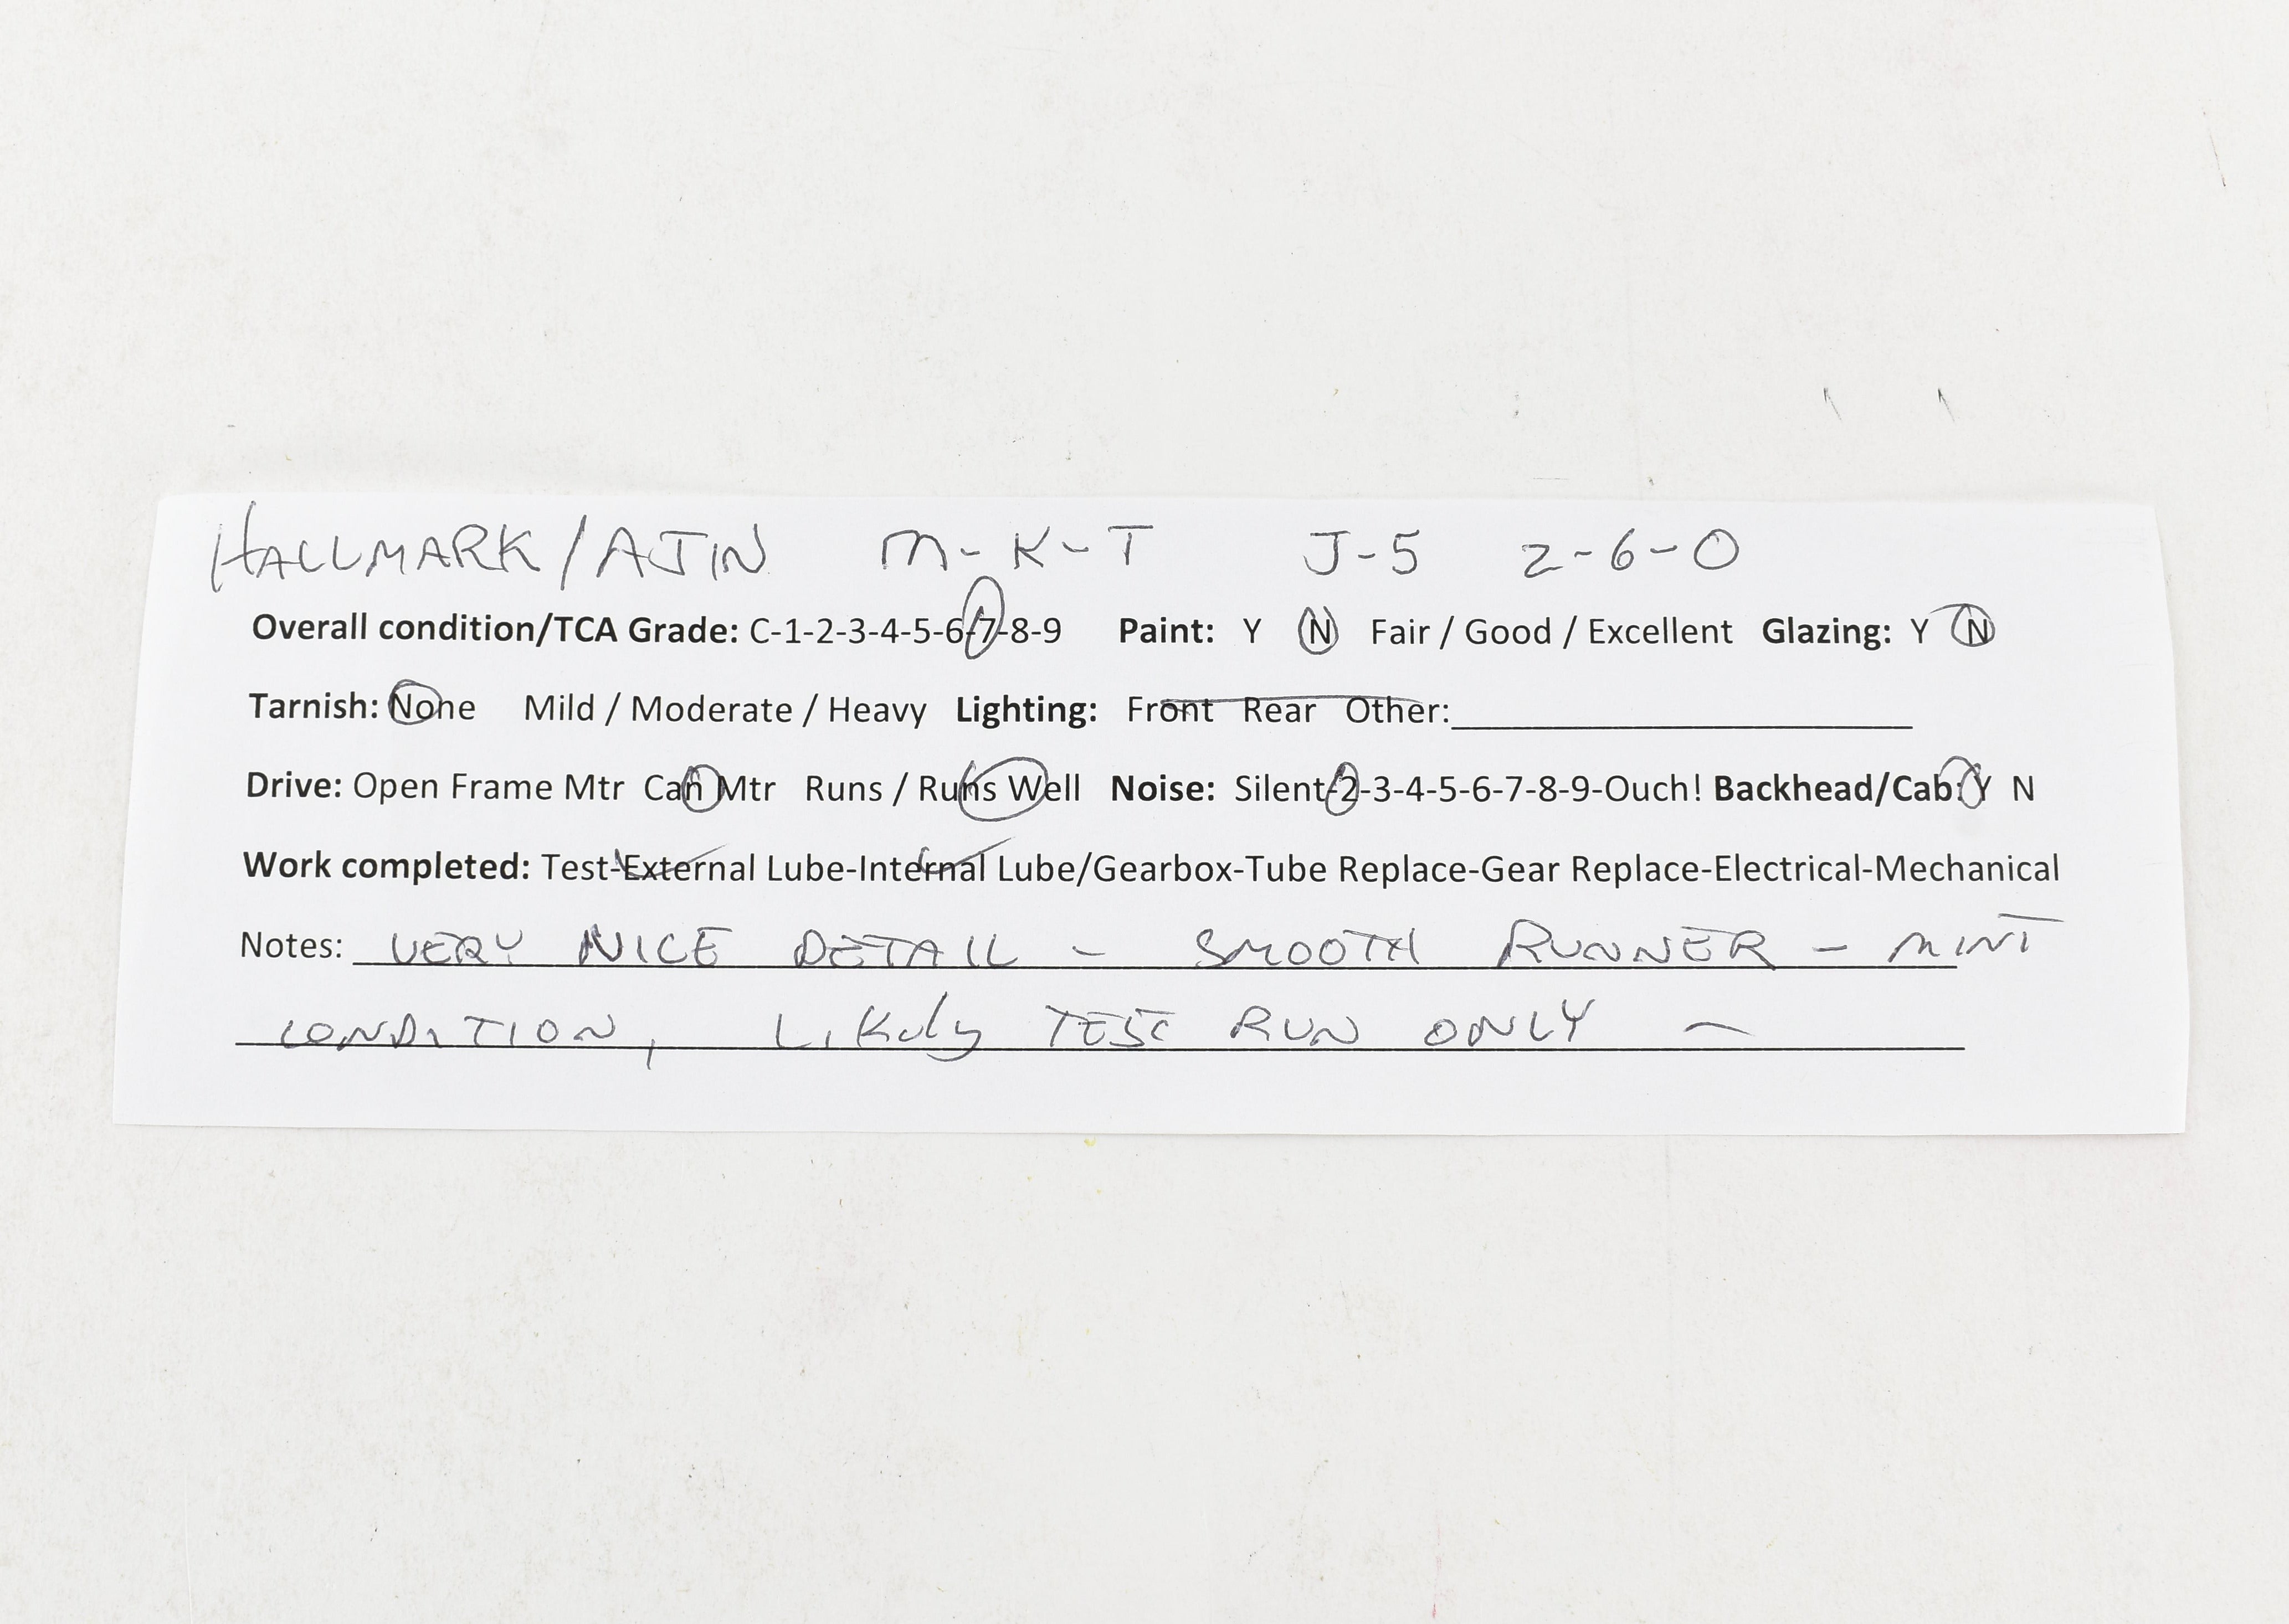 HALLMARK/AJIN M-K-T J-5 2-6-0
Overall condition/TCA Grade: C-1-2-3-4-5-6-7-8-9 Paint: Y N Fair / Good / Excellent Glazing: Y N
Tarnish: None Mild / Moderate / Heavy Lighting: Front Rear Other:
Drive: Open Frame Mtr Can Mtr Runs / Runs Well Noise: Silent-2-3-4-5-6-7-8-9-Ouch! Backhead/Cab: Y N
Work completed: Test-External Lube-Internal Lube/Gearbox-Tube Replace-Gear Replace-Electrical-Mechanical
Notes: VERY NICE DETAIL - SMOOTH RUNNER - MINT
CONDITION, Likely TEST RUN ONLY -